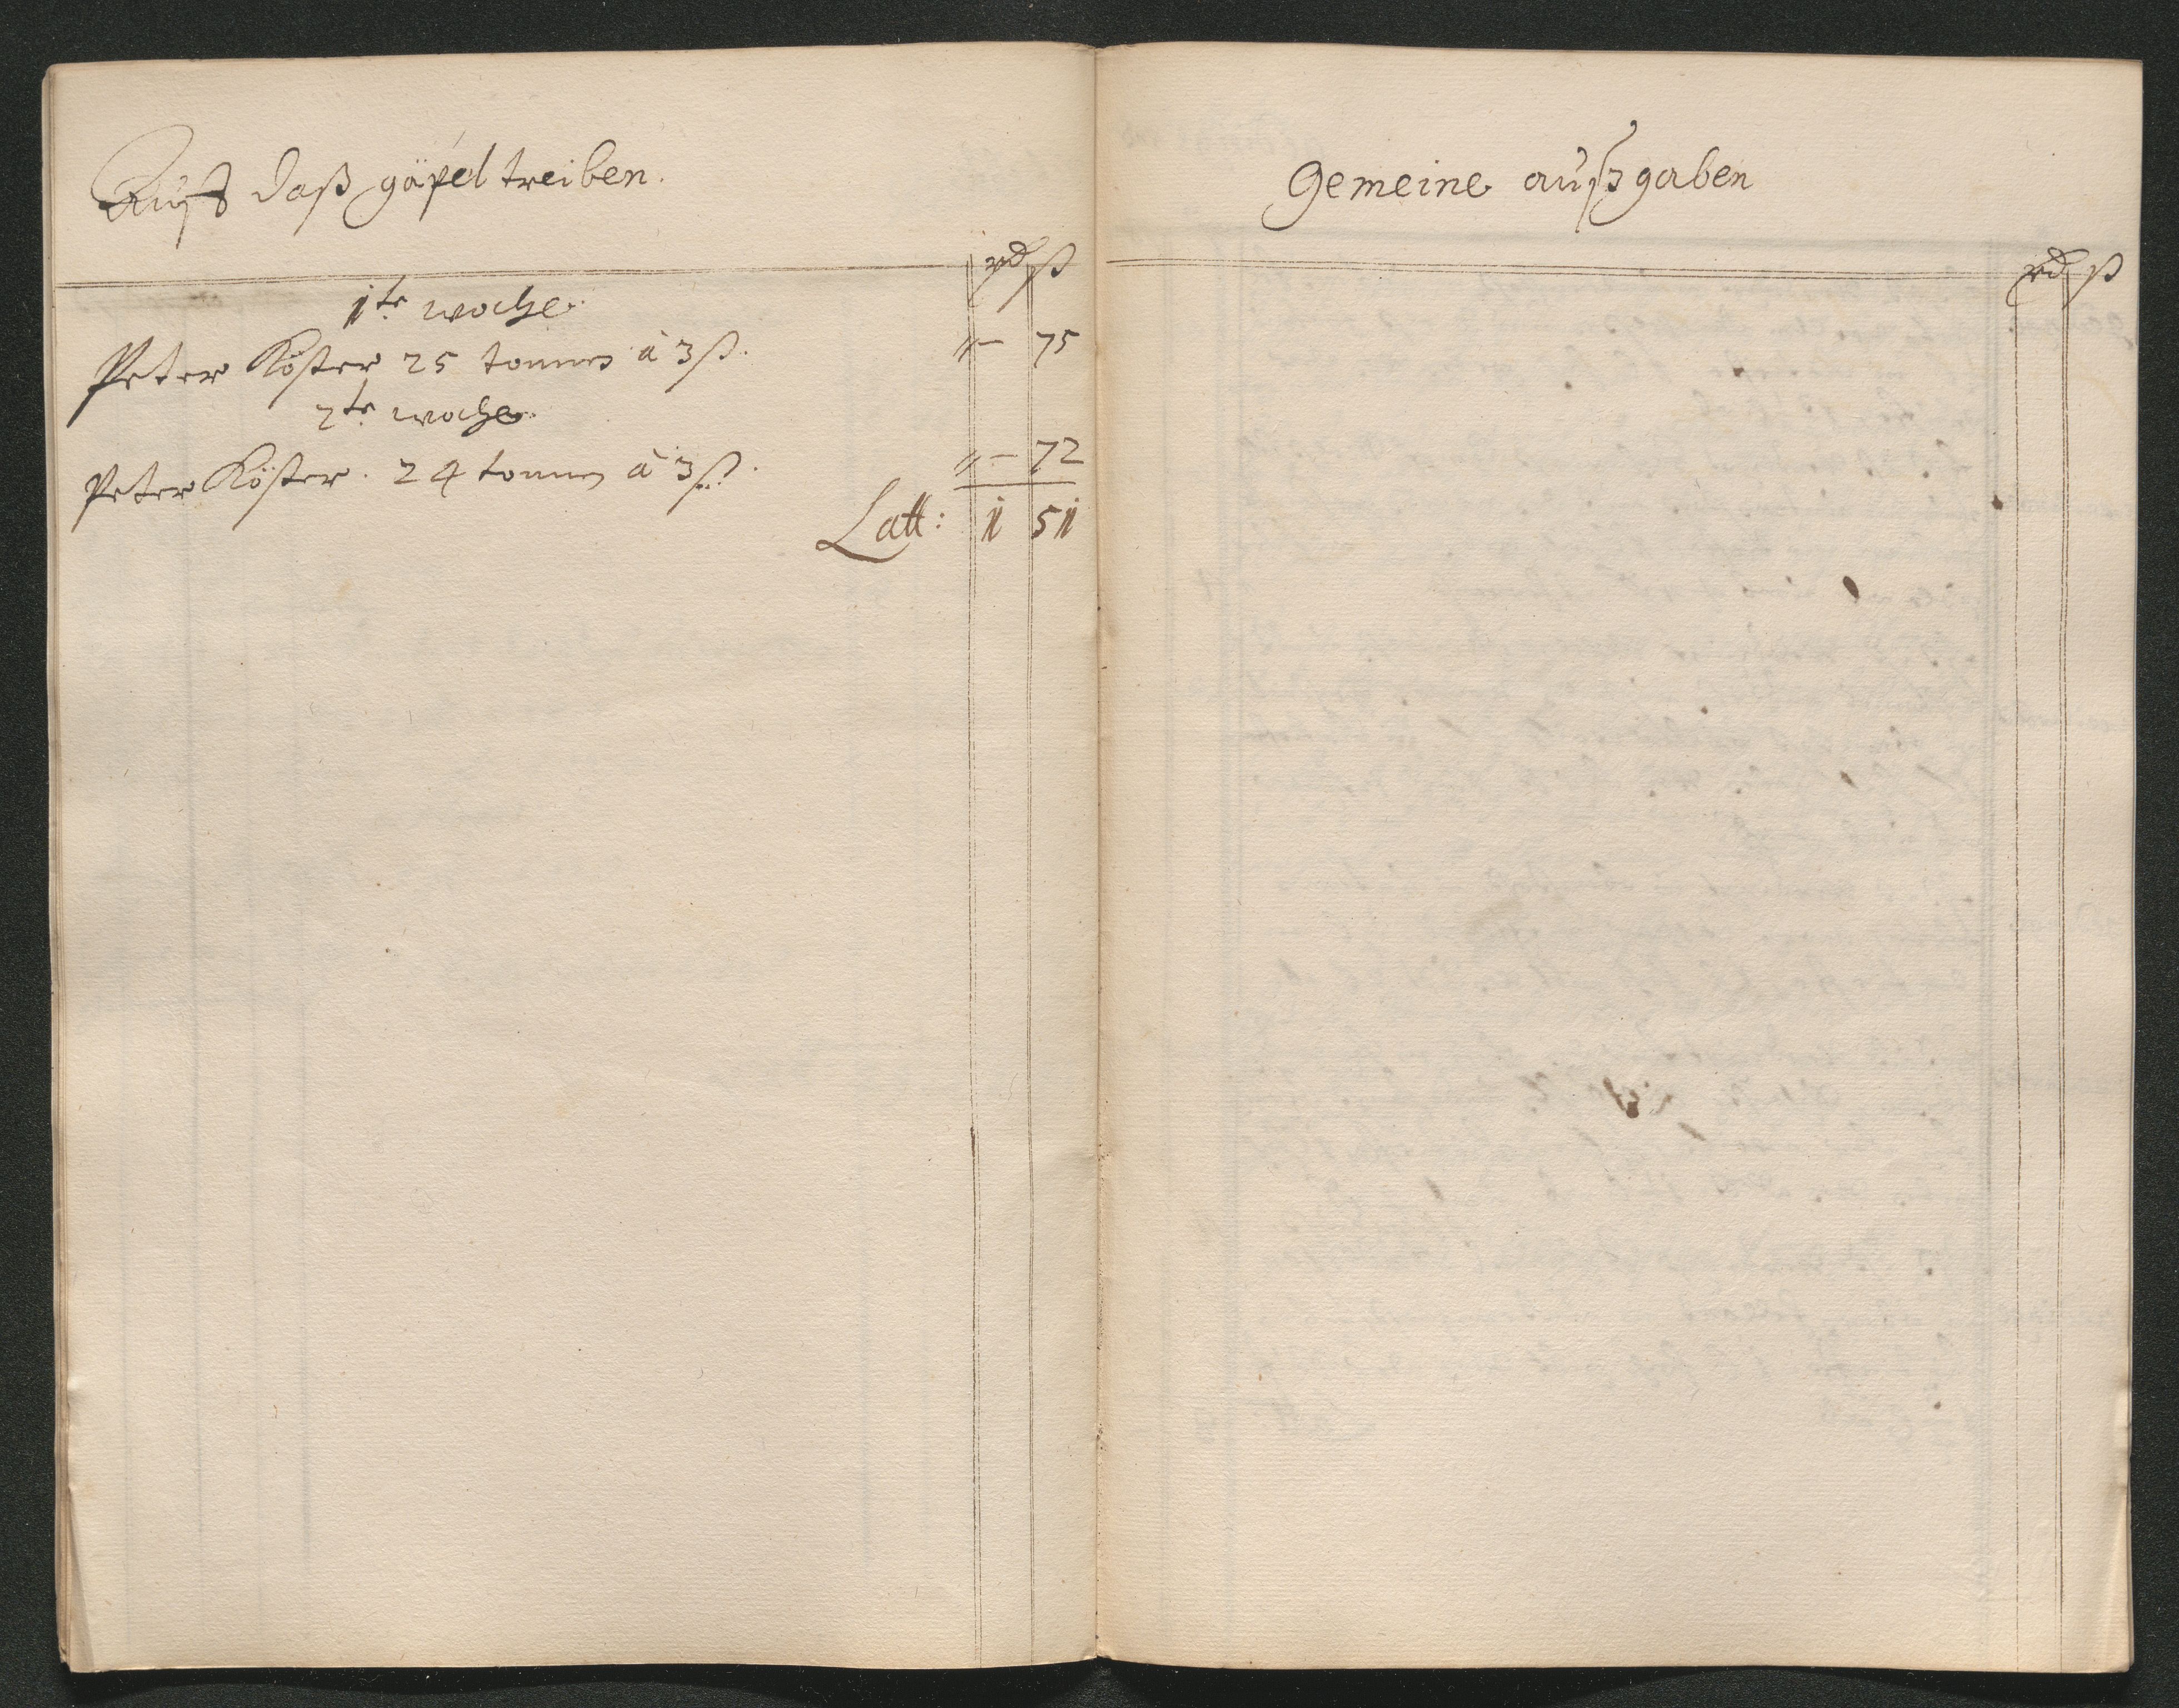 Auff daß gäpel treiben.
rd ß
1te woche.
Peter Köster 25 tonnen à 3 ß. "— 75
2te woche.
Peter Köster. 24 tonnen à 3 ß. "— 72
Latt: 1 51
Gemeine außgaben
rd ß